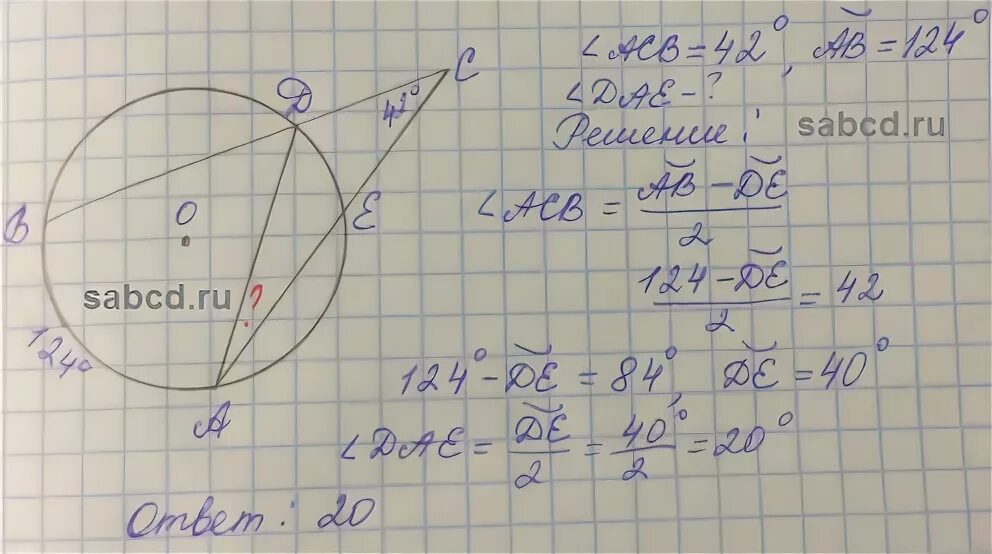 ∠ACB = 42°, A͡B = 124°
∠DAE - ?
Решение:
sabcd.ru
∠ACB = (A͡B - D͡E)/2
(124 - D͡E)/2 = 42
124° - D͡E = 84°, D͡E = 40°
∠DAE = D͡E/2 = 40°/2 = 20°
Ответ: 20
C
D
42°
B
O
E
sabcd.ru
?
124°
A